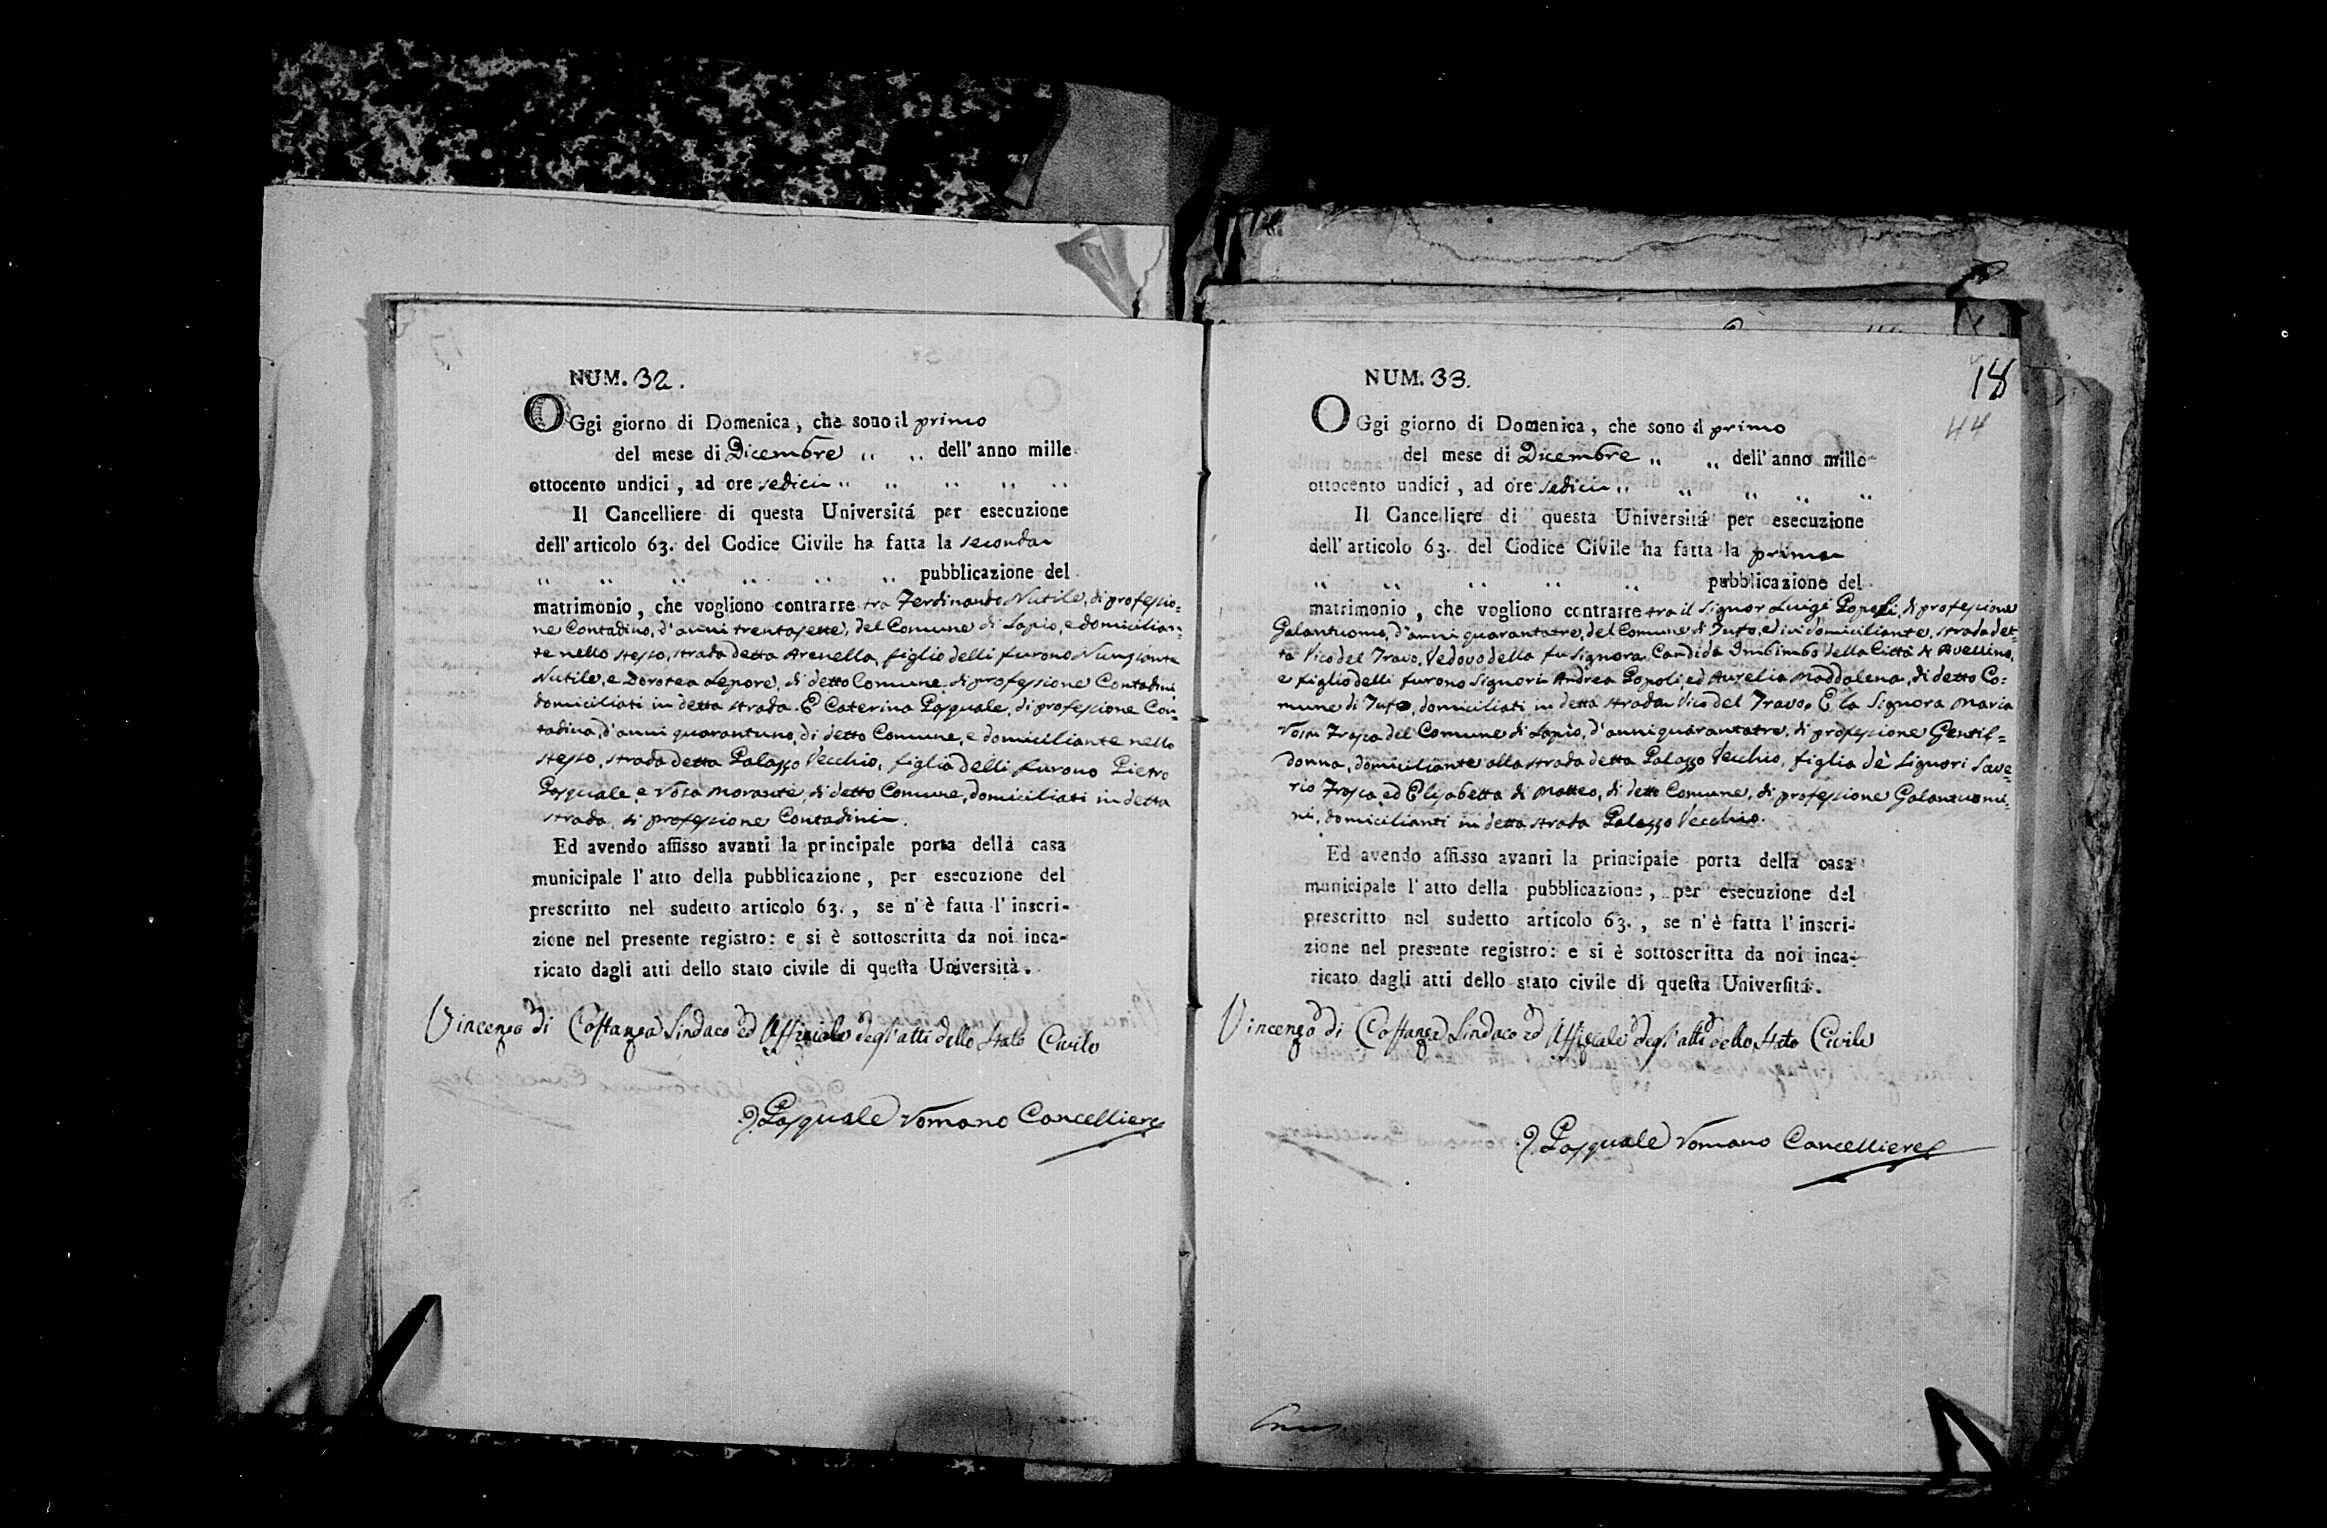 NUM. 32.
OGgi giorno di Domenica, che sono il primo
del mese di Dicembre ,, ,, dell' anno mille
ottocento undici, ad ore sedici ,, ,, ,, ,, ,,
Il Cancelliere di questa Universitá per esecuzione
dell' articolo 63. del Codice Civile ha fatta la seconda
,, ,, ,, ,, ,, ,, pubblicazione del
matrimonio, che vogliono contrarre tra Ferdinando Nutile, di professio=
ne Contadino, d'anni trentasette, del Comune di Lapio, e domicilian=
te nello stesso, strada detta Arenella, figlio delli furono Nunziante
Nutile, e Dorotea Lepore, di detto Comune, di professione Contadini
domiciliati in detta strada. E Caterina Pasquale, di professione Con=
tadina, d'anni quarantuno, di detto Comune, e domiciliante nello
stesso, strada detta Palazzo Vecchio, figlia delli furono Pietro
Pasquale, e Rosa Morante, di detto Comune, domiciliati in detta
strada, di professione Contadini.
Ed avendo affisso avanti la principale porta della casa
municipale l' atto della pubblicazione, per esecuzione del
prescritto nel sudetto articolo 63., se n' è fatta l' inscri-
zione nel presente registro: e si è sottoscritta da noi inca-
ricato dagli atti dello stato civile di questa Università.
Vincenzo di Costanza Sindaco ed Uffiziale degl'atti dello Stato Civile
Pasquale Romano Cancelliere
NUM. 33.
18
44
OGgi giorno di Domenica, che sono il primo
del mese di Dicembre ,, ,, dell' anno mille
ottocento undici, ad ore sedici ,, ,, ,, ,, ,,
Il Cancelliere di questa Universitá per esecuzione
dell' articolo 63. del Codice Civile ha fatta la prima
,, ,, ,, ,, ,, pubblicazione del
matrimonio, che vogliono contrarre tra il Signor Luigi Popoli, di professione
Galantuomo, d'anni quarantatre, del Comune di Tufo, ed ivi domiciliante, strada det=
ta Vico del Travo, Vedovo della fu Signora Candida Imbimbo della Città di Avellino,
e figlio delli furono Signori Andrea Popoli ed Aurelia Maddalena, di detto Co=
mune di Tufo, domiciliati in detta strada Vico del Travo. E la Signora Maria
Rosa Trosca del Comune di Lapio, d'anni quarantatre, di professione Gentil=
donna, domiciliante alla strada detta Palazzo Vecchio, figlia de' Signori Save=
rio Trosca, ed Elisabetta di Matteo, di detto Comune, di professione Galantuomi=
ni, domicilianti in detta strada Palazzo Vecchio.
Ed avendo affisso avanti la principale porta della casa
municipale l' atto della pubblicazione, per esecuzione del
prescritto nel sudetto articolo 63., se n' è fatta l' inscri-
zione nel presente registro: e si è sottoscritta da noi inca-
ricato dagli atti dello stato civile di questa Universitá.
Vincenzo di Costanza Sindaco ed Uffiziale degl'atti dello Stato Civile
Pasquale Romano Cancelliere